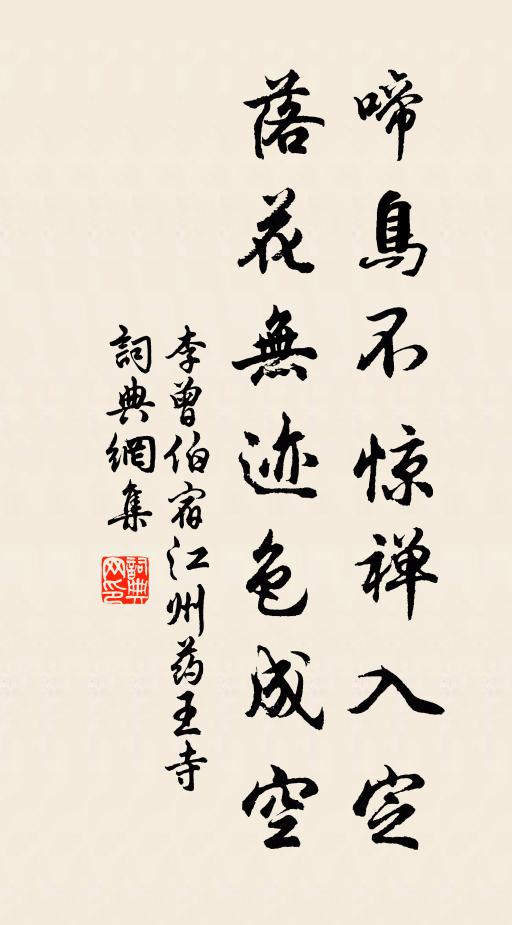 啼鳥不惊禅入定
落花無迹色成空
李曾伯宿江州药王寺
詞典網集
詞典网印